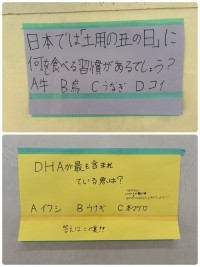 日本では「土用の丑の日」に
何を食べる習慣があるでしょう?
A牛 B馬 Cうなぎ Dコイ
DHAが最も含まれ
ている魚は?
Aイワシ Bうなぎ C本マグロ
答えはこの裏!!